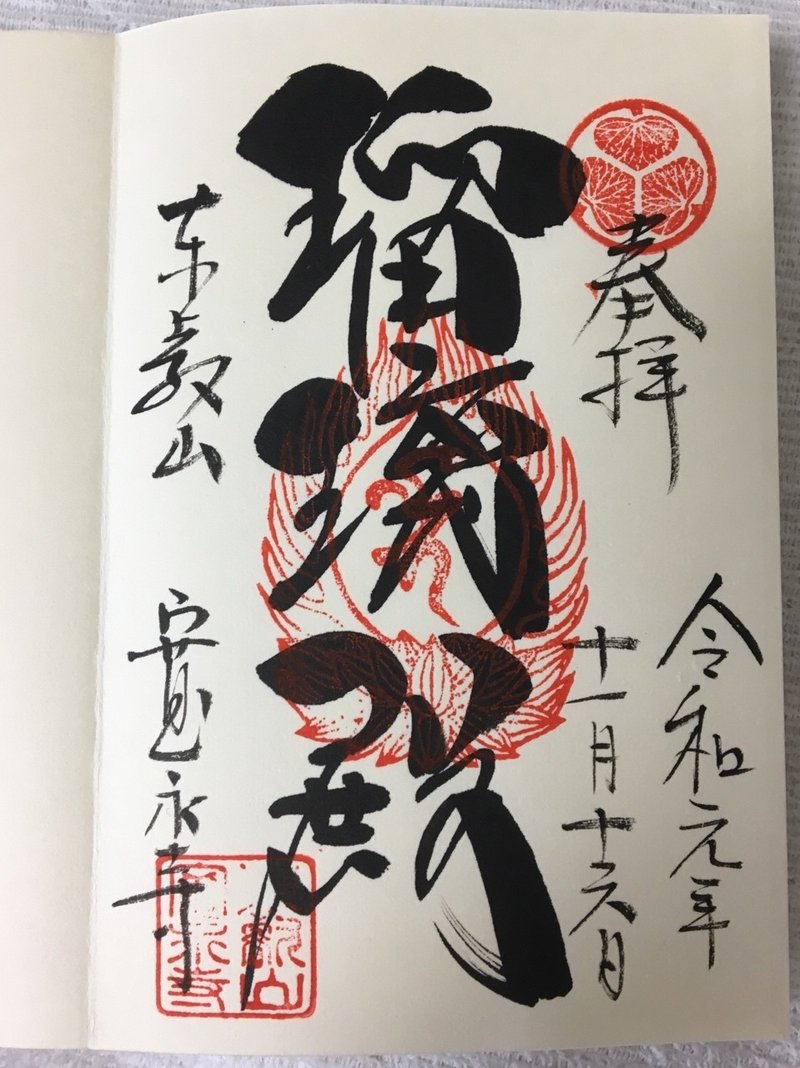 奉拝
令和元年
十一月十六日
瑠璃殿
東叡山
寛永寺